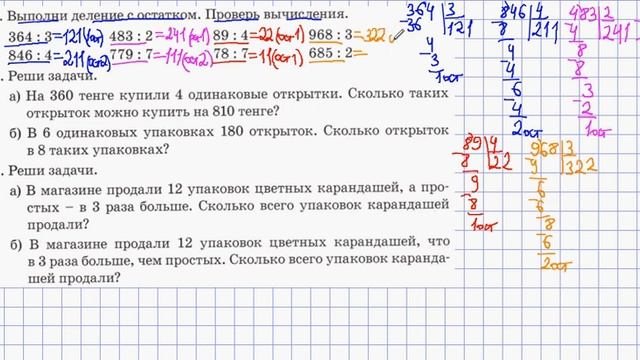 . Выполни деление с остатком. Проверь вычисления.
364 : 3 =121(ост) 483 : 2 =241(ост1) 89 : 4 =22(ост1) 968 : 3 =322
846 : 4 =211(ост2) 779 : 7 =111(ост2) 78 : 7 =11(ост1) 685 : 2 =
. Реши задачи.
а) На 360 тенге купили 4 одинаковые открытки. Сколько таких
открыток можно купить на 810 тенге?
б) В 6 одинаковых упаковках 180 открыток. Сколько открыток
в 8 таких упаковках?
. Реши задачи.
а) В магазине продали 12 упаковок цветных карандашей, а про-
стых – в 3 раза больше. Сколько всего упаковок карандашей
продали?
б) В магазине продали 12 упаковок цветных карандашей, что
в 3 раза больше, чем простых. Сколько всего упаковок каранда-
шей продали?
364 3
-36 121
4
-3
1ост
846 4
-8 211
4
-4
6
-4
2ост
483 2
-4 241
8
-8
3
-2
1ост
89 4
-8 22
9
-8
1ост
968 3
-9 322
6
-6
8
-6
2ост